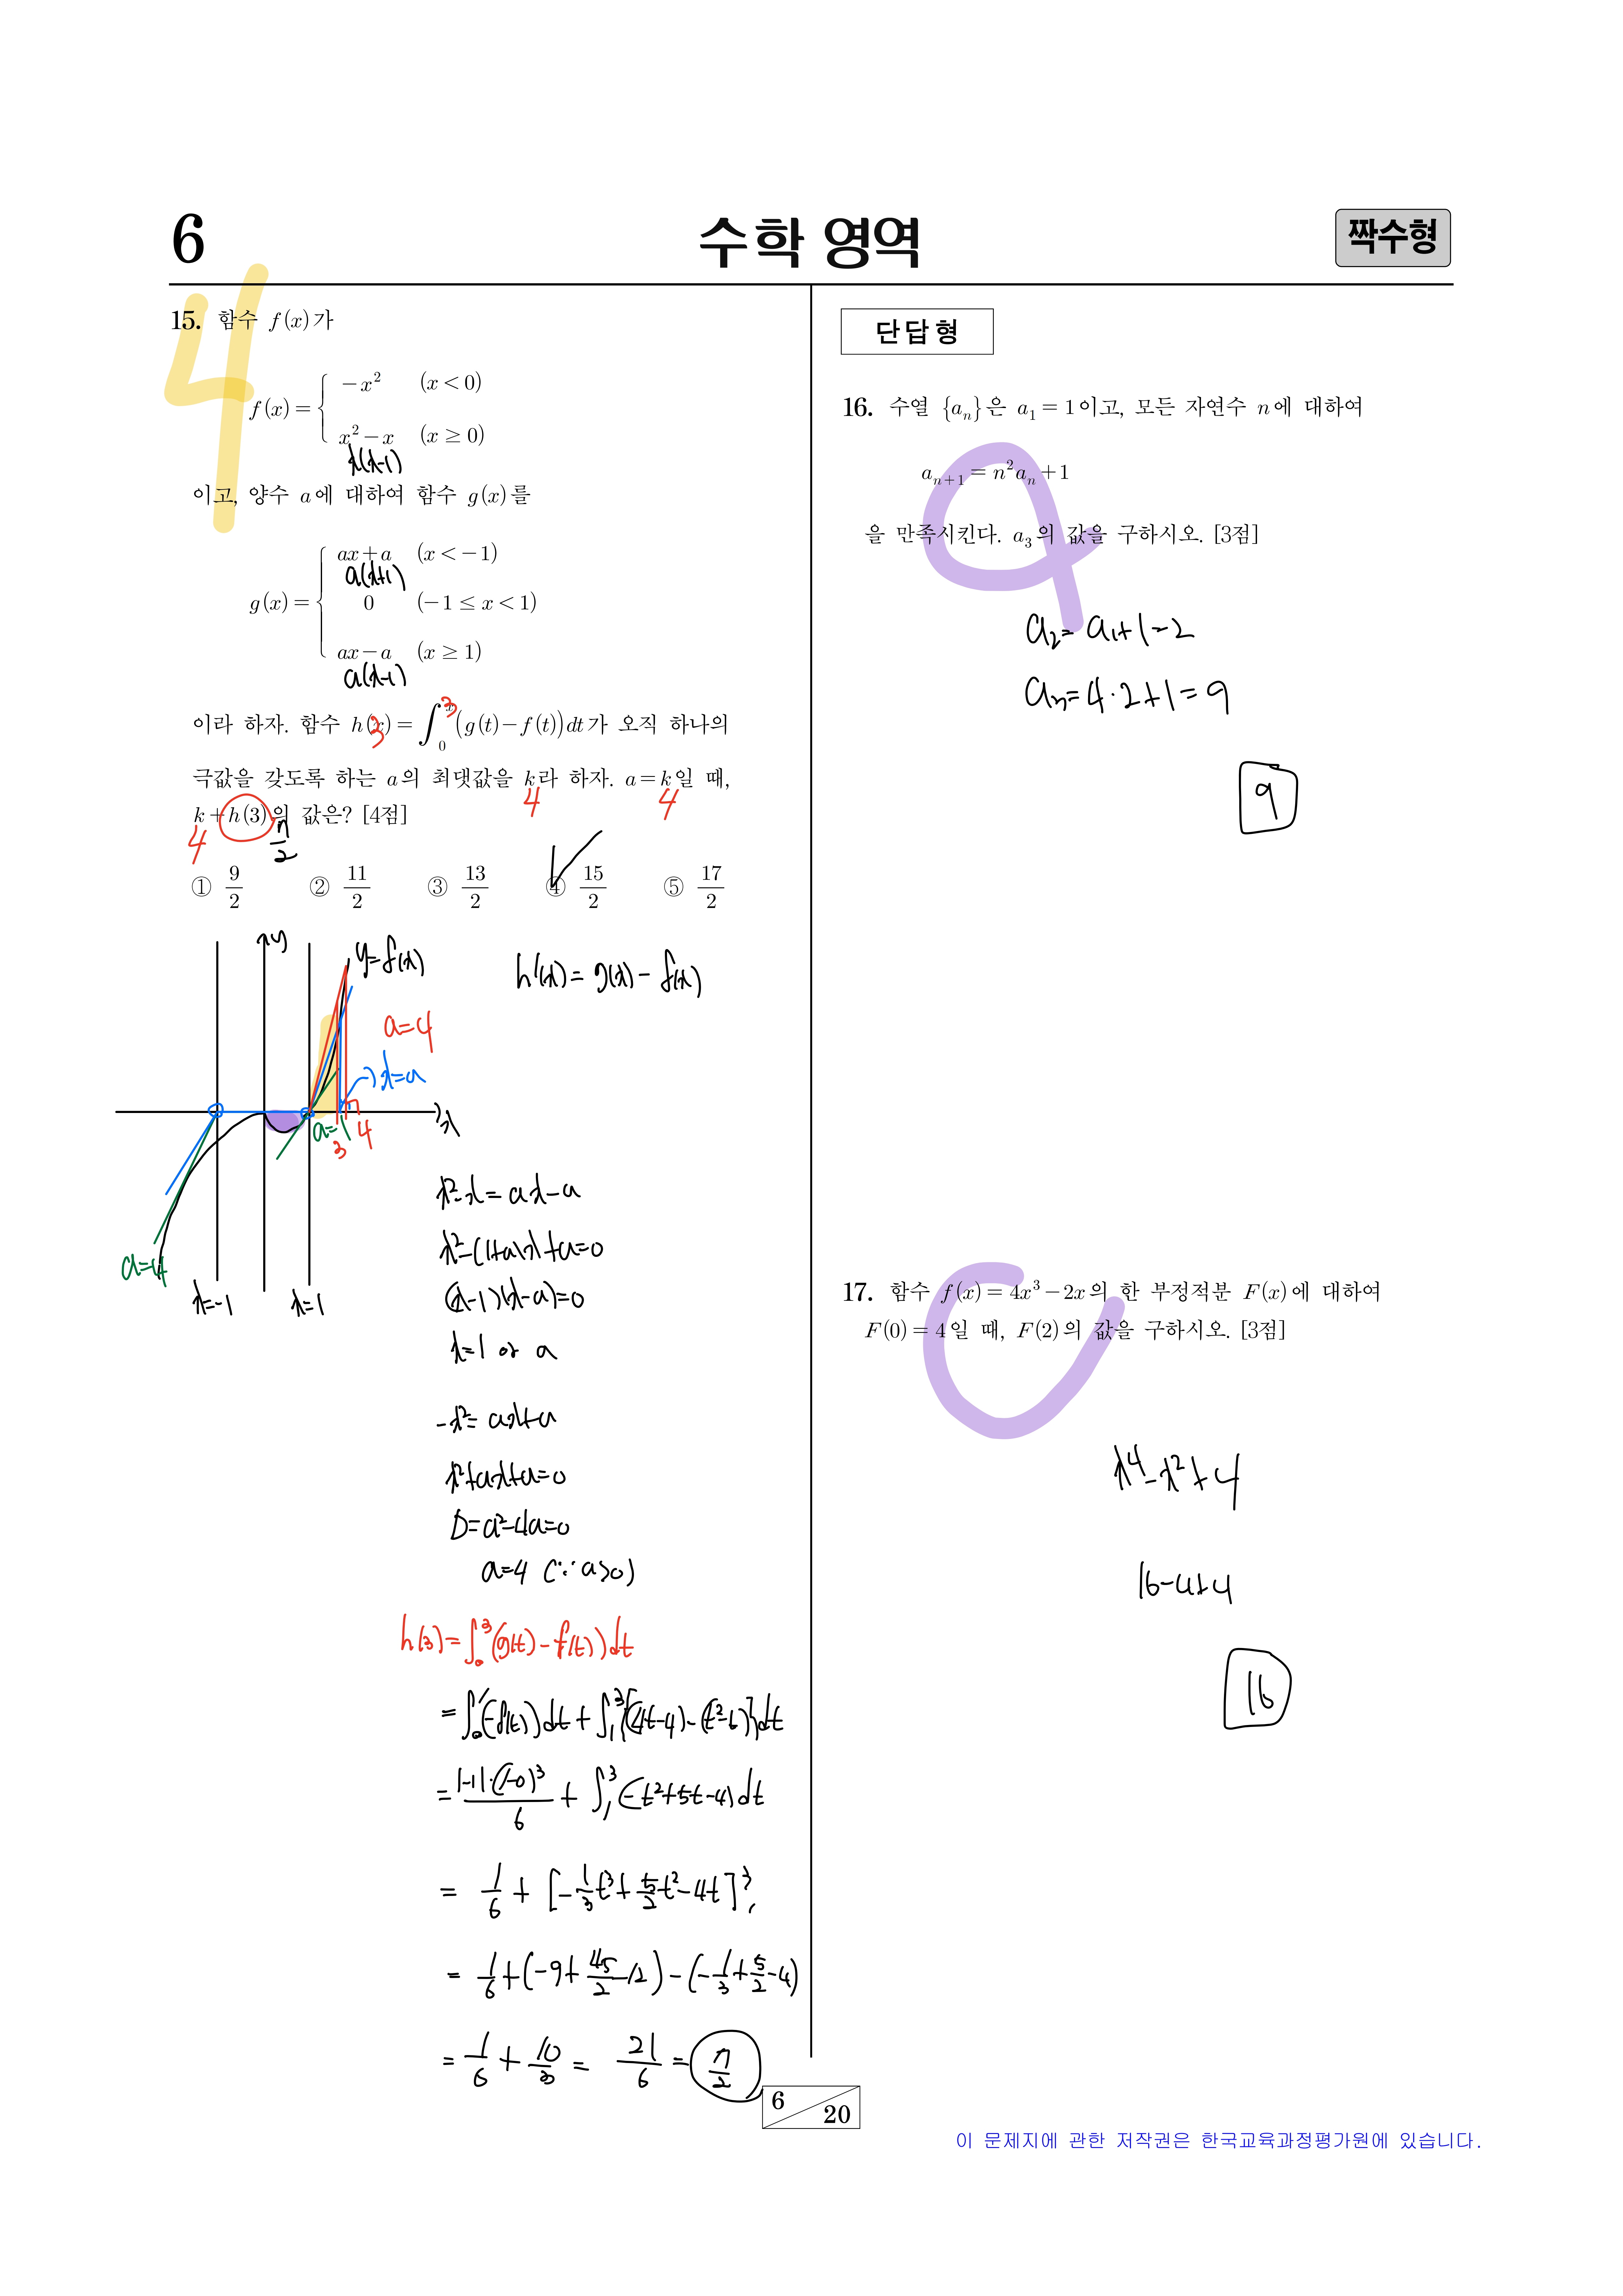 6
수학 영역
짝수형
4
15. 함수 f(x)가
f(x) = { -x² (x < 0)
x² - x (x ≥ 0)
x(x-1)
이고, 양수 a에 대하여 함수 g(x)를
g(x) = { ax + a (x < -1)
a(x+1)
0 (-1 ≤ x < 1)
ax - a (x ≥ 1)
a(x-1)
이라 하자. 함수 h(x) = ∫₀ˣ (g(t) - f(t))dt가 오직 하나의
3 3
극값을 갖도록 하는 a의 최댓값을 k라 하자. a = k일 때,
4 4
k + h(3)의 값은? [4점]
4 7/2
① 9/2 ② 11/2 ③ 13/2 ④ 15/2 ⑤ 17/2
y
y=f(x)
a=4
x=a
x
a=1
3 4
a=4
x=-1 x=1
h'(x) = g(x) - f(x)
x²-x = ax-a
x²-(1+a)x+a=0
(x-1)(x-a)=0
x=1 or a
-x² = ax+a
x²+ax+a=0
D=a²-4a=0
a=4 (∵a>0)
h(3)=∫₀³(g(t)-f(t))dt
=∫₀¹(-f(t))dt+∫₁³{(4t-4)-(t²-t)}dt
=|-1|·(1-0)³/6 + ∫₁³(-t²+5t-4)dt
= 1/6 + [-1/3t³+5/2t²-4t]³₁
= 1/6+(-9+45/2-12)-(-1/3+5/2-4)
= 1/6 + 10/3 = 21/6 = 7/2
단답형
16. 수열 {aₙ}은 a₁ = 1이고, 모든 자연수 n에 대하여
aₙ₊₁ = n²aₙ + 1
을 만족시킨다. a₃의 값을 구하시오. [3점]
9
a₂=a₁+1=2
a₃=4·2+1=9
9
17. 함수 f(x) = 4x³ - 2x의 한 부정적분 F(x)에 대하여
F(0) = 4일 때, F(2)의 값을 구하시오. [3점]
x⁴-x²+4
16-4+4
16
6
20
이 문제지에 관한 저작권은 한국교육과정평가원에 있습니다.